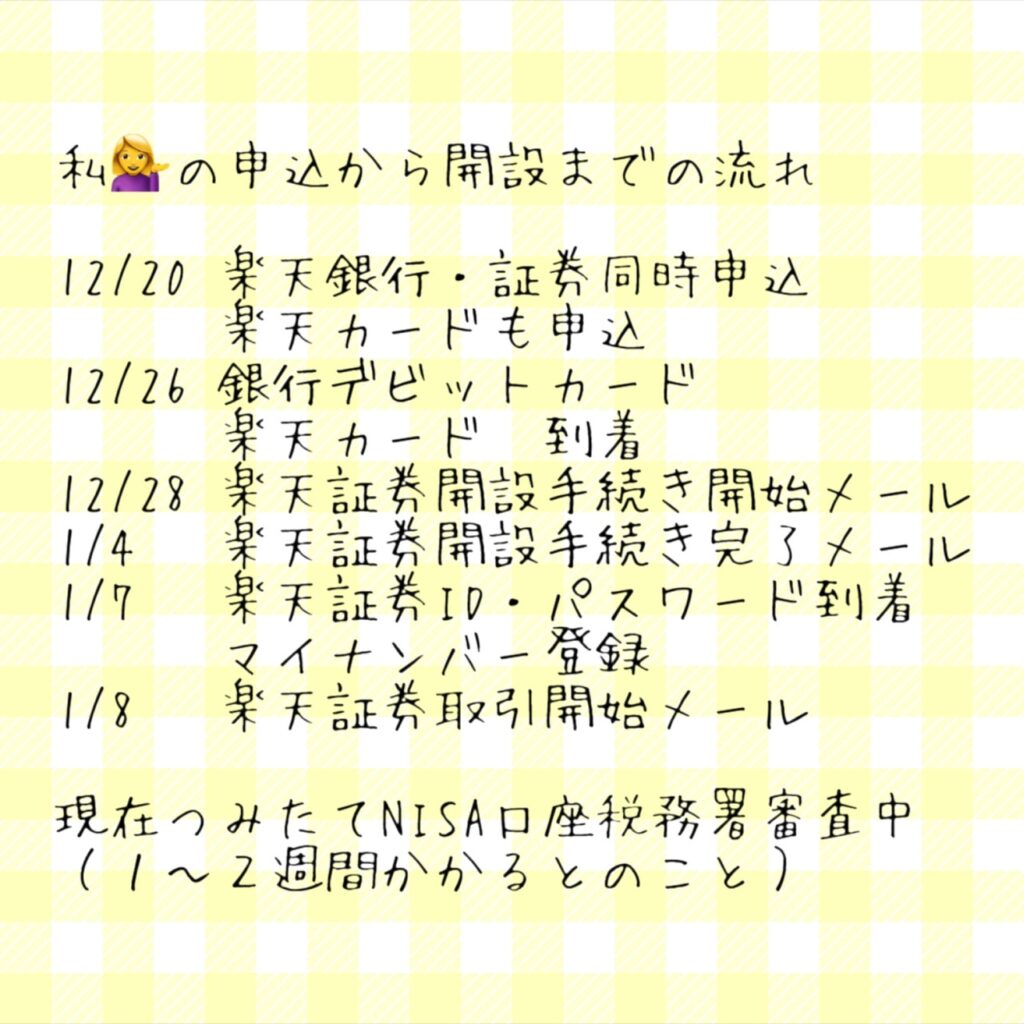 私💁‍♀️の申込から開設までの流れ
12/20 楽天銀行・証券同時申込
楽天カードも申込
12/26 銀行デビットカード
楽天カード 到着
12/28 楽天証券開設手続き開始メール
1/4 楽天証券開設手続き完了メール
1/7 楽天証券ID・パスワード到着
マイナンバー登録
1/8 楽天証券取引開始メール
現在つみたてNISA口座税務署審査中
（1〜2週間かかるとのこと）